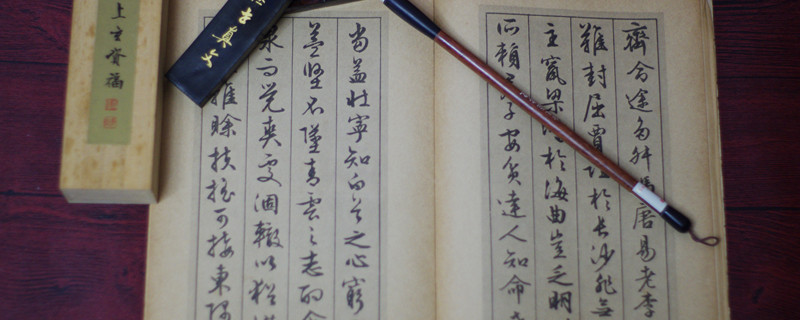 齊命途多舛馮唐易老李
難封屈賈誼於長沙非無
主竄梁於海曲豈乏明
所賴子安貧達人知命
當益壯寧知白首之心窮
益堅不墜青雲之志酌
泉而覺爽處涸轍以猶
雖賒扶搖可接東隅
上主福